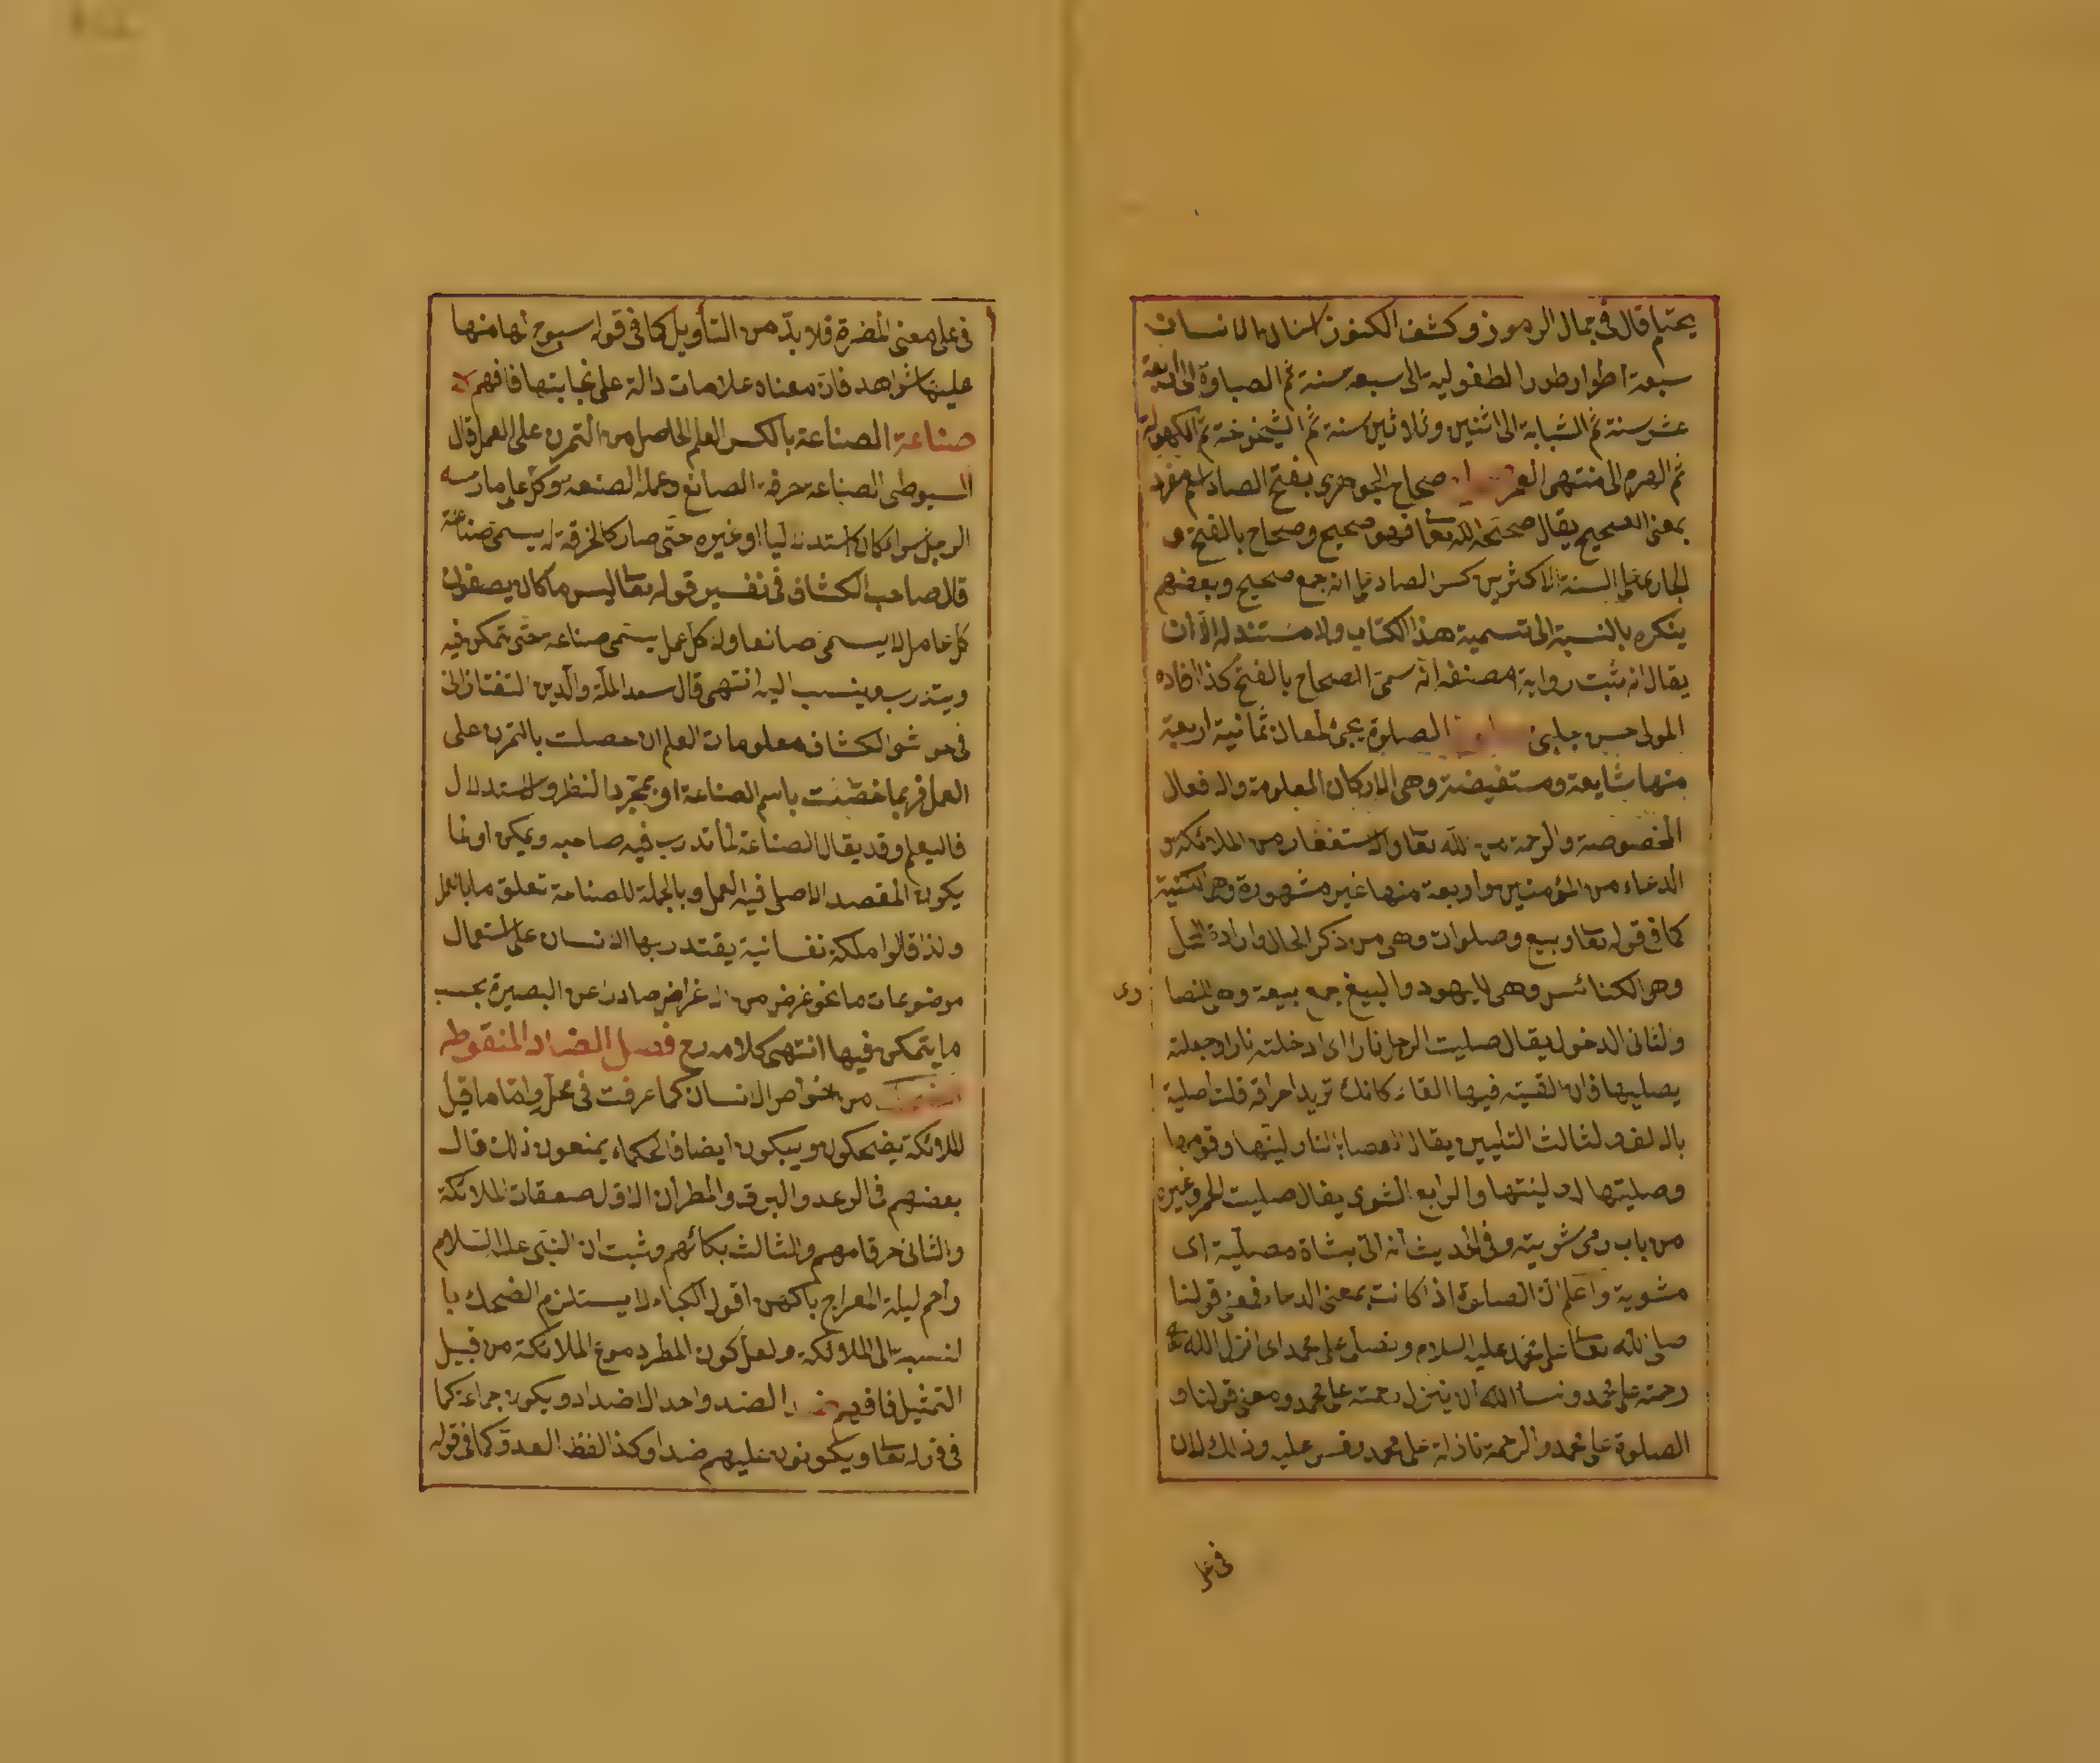 يحتلم قال في جمال الرموز وكشف الكنوز اسنان الانسان
سبعة اطوار طور الطفولية الى سبعة سنة ثم الصباوة الى اربعة
عشر سنة ثم الشبابة الى اثنين وثلاثين سنة ثم الشيخوخة ثم الكهولة
ثم الهرم الى منتهى العمر صحاح الجوهرى بفتح الصاد اسم مفرد
بمعنى الصحيح يقال صححه الله تعا فهو صحيح وصحاح بالفتح و
الجارى على السنة الاكثرين كسر الصاد على انه جمع صحيح وبعضهم
ينكره بالنسبة الى تسمية هذا الكتاب ولا مستند له الا ان
يقال انه ثبت رواية مصنفه انه سمى الصحاح بالفتح كذا افاده
المولى حسن جلبى الصلوة يجئ لمعان ثمانية اربعة
منها شايعة ومستفيضة وهى الاركان المعلومة والافعال
المخصوصة والرحمة من الله تعا والاستغفار من الملائكة و
الدعاء من المؤمنين واربعة منها غير مشهورة وهى الكنية
كما في قوله تعا وبيع وصلوات وهى من ذكر الحال وارادة المحل
وهى الكنائس وهى لليهود والبيع جمع بيعة وهى للنصا
رى
والثانى الدخول يقال صليت الرجل نارا اى ادخلته نارا وجعلته
يصليها فان القيته فيها القاء كانك تريد احراقه قلت اصليته
بالالف والثالث التليين يقال العصا بالنار لينتها وقومها
وصليتها اى لينتها والرابع الشوى يقال صليت اللحم وغيره
من باب رمى شويته وفى الحديث انه اتى بشاة مصلية اى
مشوية واعلم ان الصلوة اذا كانت بمعنى الدعاء فمعنى قولنا
صلى الله تعا على محمد عليه السلام ونصلى على محمد اى انزل الله تعا
رحمته على محمد ونسأل الله ان ينزل رحمته على محمد ومعنى قولنا و
الصلوة على محمد والرحمة نازلة على محمد وقس عليه وذلك لان
فى على
فى على معنى المضرة فلا بد من التأويل كما فى قوله سبوح لها منها
عليها شواهد فان معناه علامات دالة على نجابتها فافهم
صناعة الصناعة بالكسر العلم الحاصل من التمرن على العمل قال
السيوطى الصناعة حرفة الصانع وعمله الصنعة وكل على مارسه
الرجل سواء كان استدلاليا او غيره حتى صار كالحرفة له يسمى صناعة
قال صاحب الكشاف فى تفسير قوله تعا لبيس ما كانوا يصنعون
كل عامل لا يسمى صانعا ولا كل عمل يسمى صناعة حتى يتمكن فيه
ويتدرب وينسب اليه انتهى قال سعد الملة والدين التفتازانى
فى حواشى الكشاف معلومات العلم ان حصلت بالتمرن على
العمل فربما خصت باسم الصناعة او بمجرد النظر والاستدلال
فاليعلم وقد يقال الصناعة لما تدرب فيه صاحبه ويمكن او لما
يكون المقصد الاصلى فيه العمل وبالجملة للصناعة تعلق ما بالعمل
ولذا قالوا ملكة نفسانية يقتدر بها الانسان على استعمال
موضوعات ما نحو غرض من الاغراض صادرا عن البصيرة بحسب
ما يتمكن فيها انتهى كلامه رح فصل الضاد المنقوطه
من خواص الانسان كما عرفت فى محله واما ما قيل
الملائكة يضحكون ويبكون ايضا فالحكماء يمنعون ذلك قال
بعضهم فى الرعد والبرق والمطر ان الاول صعقات الملائكة
والثانى حرقامهم والثالث بكائهم وثبت ان النبى عليه السلام
رآهم ليلة المعراج باكين اقول البكاء لا يستلزم الضحك با
لنسبة الى الملائكة ولعل كون المطر دموع الملائكة من قبيل
التمثيل فافهم الضد واحد الاضداد ويكون جماعة كما
فى قوله تعا ويكونون عليهم ضدا وكذا لفظ العدو كما فى قوله